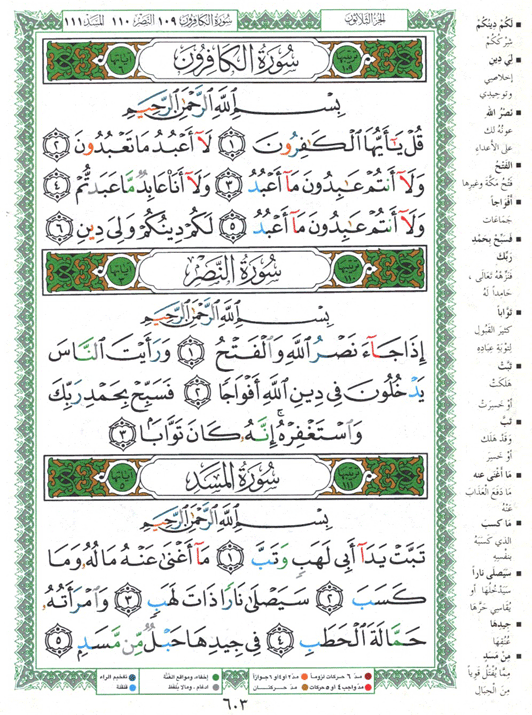 سُورَةُ الكَافِرُون ١٠٩ النَّصْر ١١٠ المَسَد ١١١
الجُزْءُ الثَّلَاثُونَ
سُورَةُ الكَافِرُونَ
بِسْمِ اللَّهِ الرَّحْمَٰنِ الرَّحِيمِ
قُلْ يَٰٓأَيُّهَا ٱلْكَٰفِرُونَ ١ لَآ أَعْبُدُ مَا تَعْبُدُونَ ٢
وَلَآ أَنتُمْ عَٰبِدُونَ مَآ أَعْبُدُ ٣ وَلَآ أَنَا۠ عَابِدٌ مَّا عَبَدتُّمْ ٤
وَلَآ أَنتُمْ عَٰبِدُونَ مَآ أَعْبُدُ ٥ لَكُمْ دِينُكُمْ وَلِىَ دِينِ ٦
سُورَةُ النَّصْرِ
بِسْمِ اللَّهِ الرَّحْمَٰنِ الرَّحِيمِ
إِذَا جَآءَ نَصْرُ ٱللَّهِ وَٱلْفَتْحُ ١ وَرَأَيْتَ ٱلنَّاسَ
يَدْخُلُونَ فِى دِينِ ٱللَّهِ أَفْوَاجًا ٢ فَسَبِّحْ بِحَمْدِ رَبِّكَ
وَٱسْتَغْفِرْهُ ۚ إِنَّهُۥ كَانَ تَوَّابًۢا ٣
سُورَةُ المَسَدِ
بِسْمِ اللَّهِ الرَّحْمَٰنِ الرَّحِيمِ
تَبَّتْ يَدَآ أَبِى لَهَبٍ وَتَبَّ ١ مَآ أَغْنَىٰ عَنْهُ مَالُهُۥ وَمَا
كَسَبَ ٢ سَيَصْلَىٰ نَارًا ذَاتَ لَهَبٍ ٣ وَٱمْرَأَتُهُۥ
حَمَّالَةَ ٱلْحَطَبِ ٤ فِى جِيدِهَا حَبْلٌ مِّن مَّسَدٍۭ ٥
■ لَكُمْ دِينُكُمْ
شِرْكُكُمْ
■ لِيَ دِينِ
إخلاصِي
وتوحيدِي
■ نَصْرُ الله
عَوْنُهُ لك
على الأعداءِ
■ الفَتْحُ
فَتْحُ مَكَّةَ وغيرِها
■ أَفْوَاجاً
جَمَاعَات
■ فَسَبِّحْ بِحَمْدِ
رَبِّكَ
فَنَزِّهْهُ تَعَالَى ،
حَامِداً لَهُ
■ تَوَّاباً
كثيرَ القَبُولِ
لِتَوْبَةِ عِبَادِهِ
■ تَبَّتْ
هَلَكَتْ
أَوْ خَسِرَتْ
■ تَبَّ
وَقَدْ هَلَكَ
أَوْ خَسِرَ
■ مَا أَغْنَى عنه
مَا دَفَعَ الْعَذَابَ
عَنْهُ
■ مَا كسَبَ
الذي كَسَبَهُ
بِنَفْسِهِ
■ سَيَصْلَى ناراً
سَيَدْخُلُهَا أو
يُقَاسِي حَرَّهَا
■ جِيدِهَا
عُنُقِها
■ مِنْ مَسَدٍ
مِمَّا يُفْتَلُ قَوِياً
مِنَ الْحِبَالِ
مدّ ٦ حركات لزوماً
مدّ ٢ أو ٤ أو ٦ جوازاً
إخفاء، ومواقع الغنّة
تفخيم الراء
مدّ واجب ٤ أو ٥ حركات
مدّ حركتان
ادغام ، وما لا يلفظ
قلقلة
٦٠٣